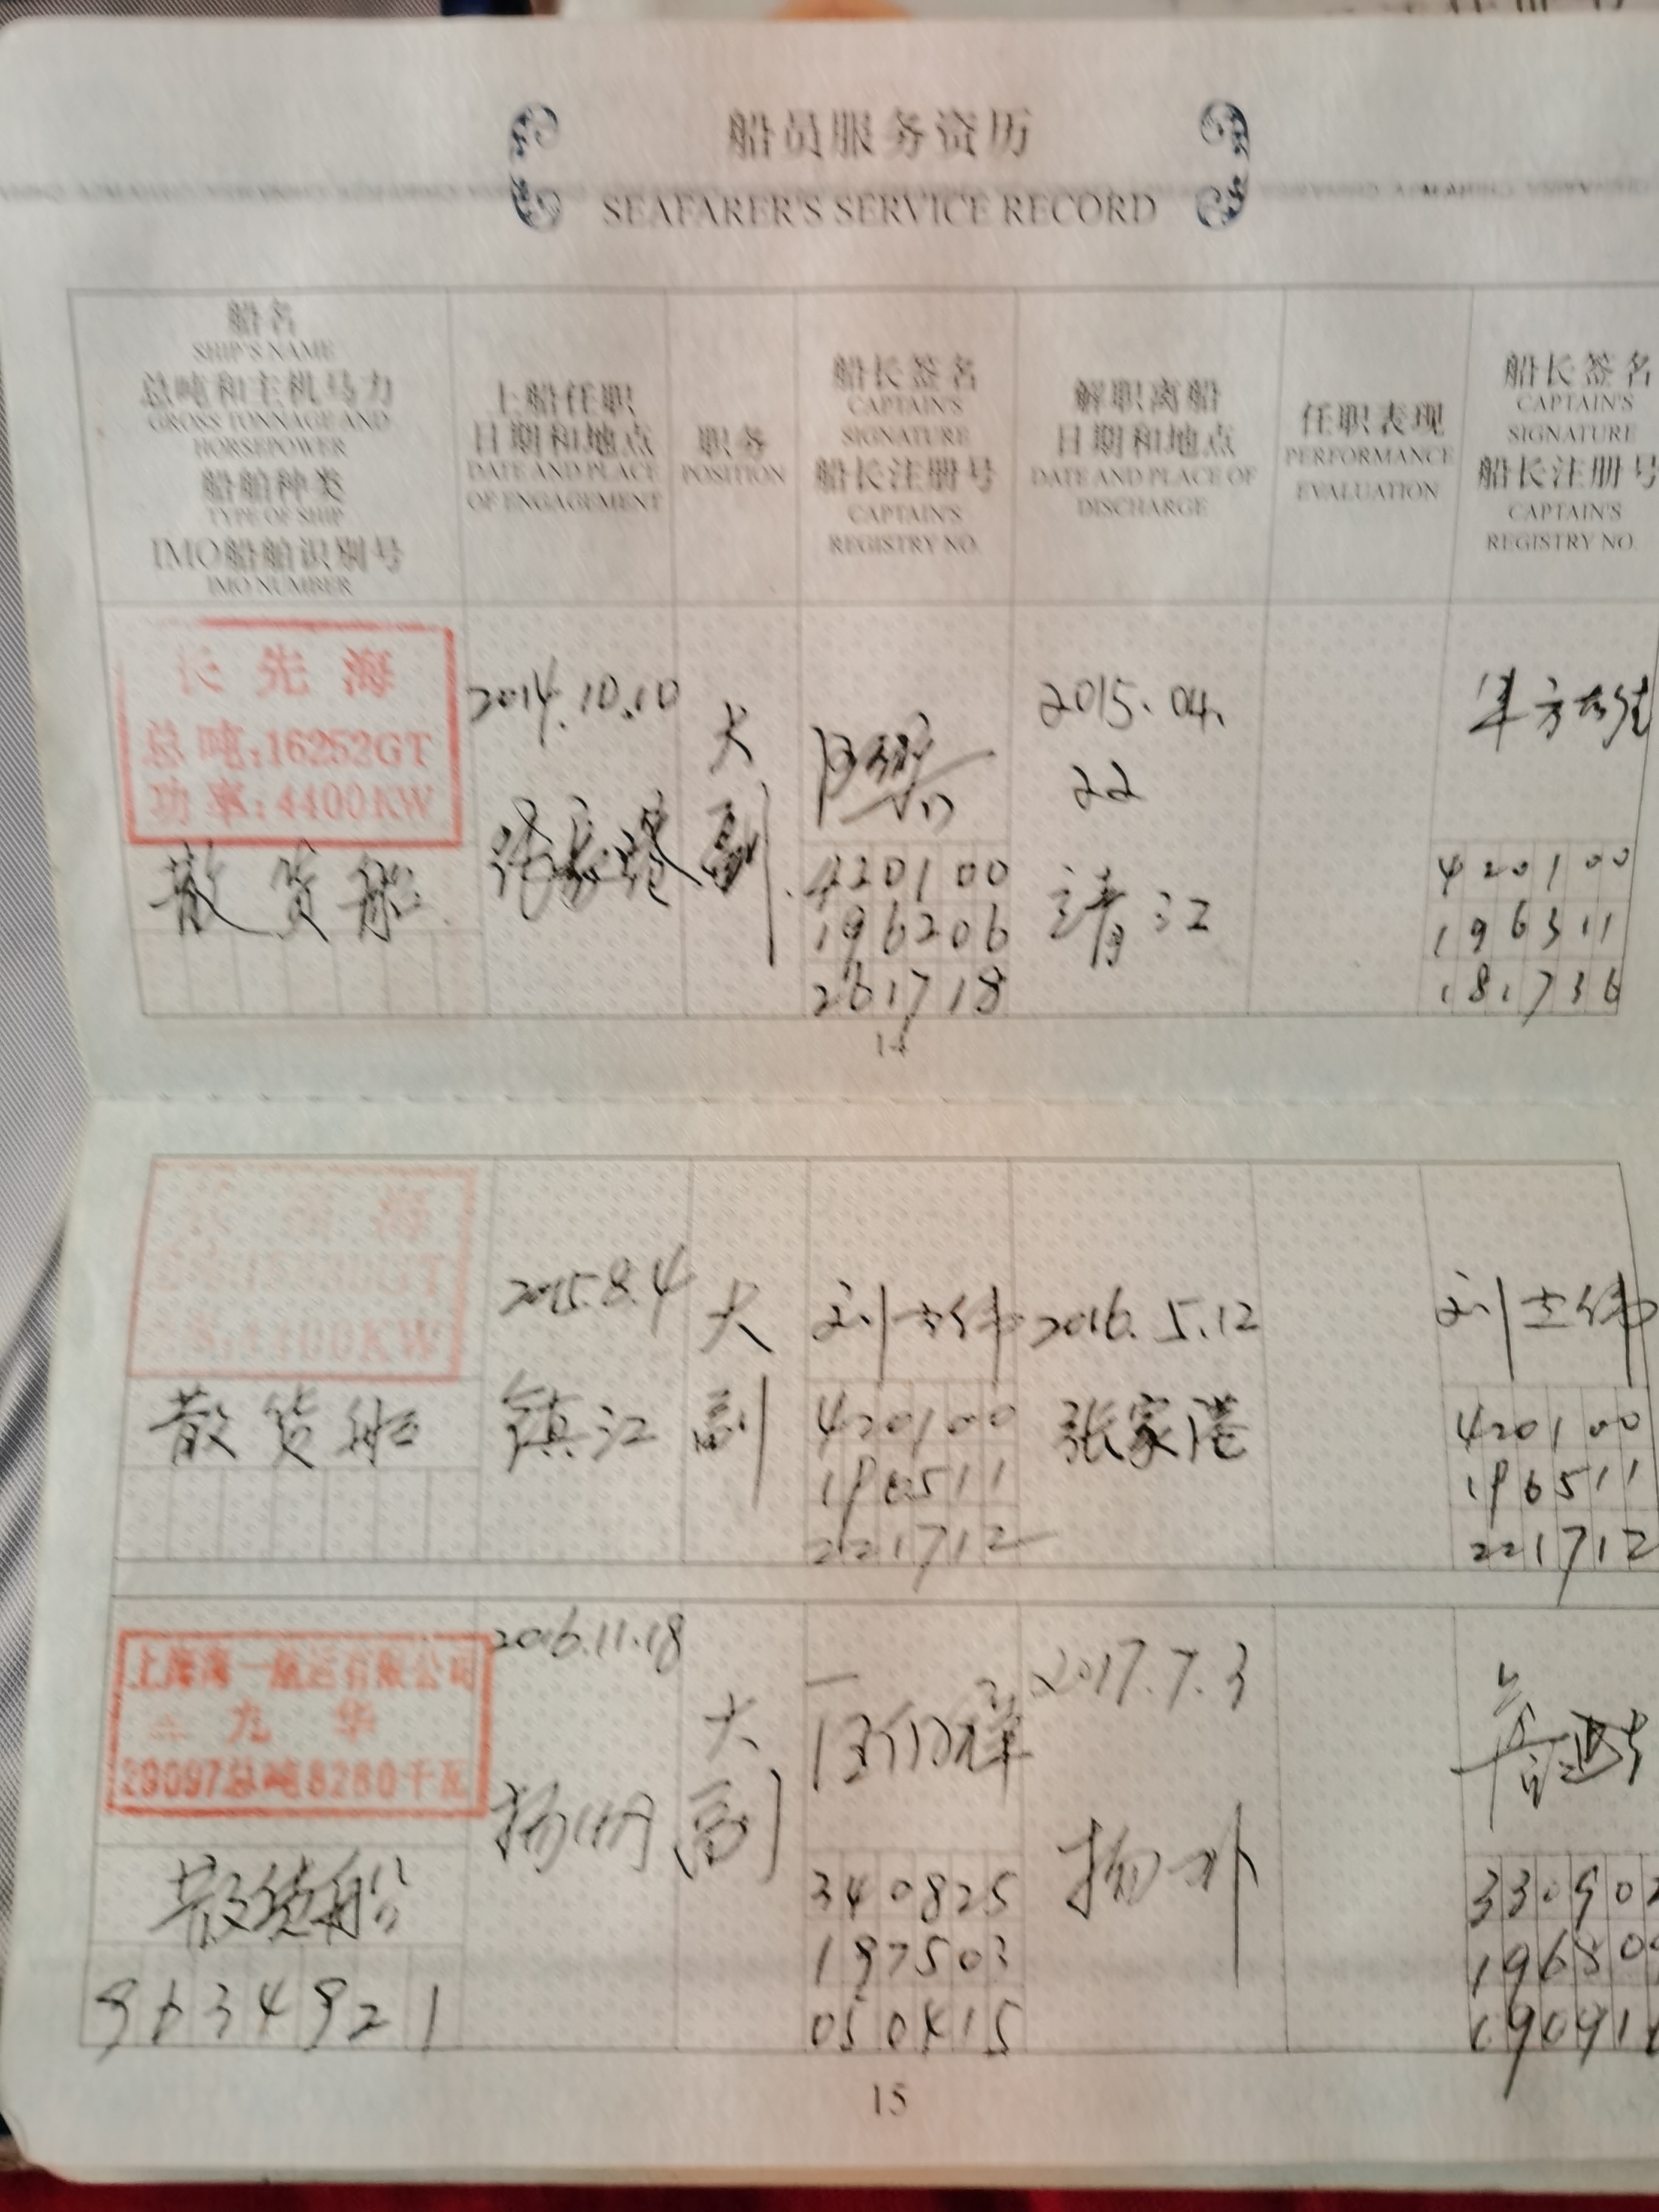 船员服务资历
SEAFARER'S SERVICE RECORD
船名
SHIP'S NAME
总吨和主机马力
GROSS TONNAGE AND
HORSEPOWER
船舶种类
TYPE OF SHIP
IMO船舶识别号
IMO NUMBER
上船任职
日期和地点
DATE AND PLACE
OF ENGAGEMENT
职务
POSITION
船长签名
CAPTAIN'S
SIGNATURE
船长注册号
CAPTAIN'S
REGISTRY NO.
解职离船
日期和地点
DATE AND PLACE OF
DISCHARGE
任职表现
PERFORMANCE
EVALUATION
船长签名
CAPTAIN'S
SIGNATURE
船长注册号
CAPTAIN'S
REGISTRY NO.
长先海
总吨:16252GT
功率:4400KW
散货船
2014.10.10
张家港
大
副
420100
196206
261718
2015.04.
22
靖江
420100
196311
181736
14
海
KW
散货船
2015.8.4
镇江
大
副
刘志伟
420100
196511
221712
2016.5.12
张家港
刘志伟
420100
196511
221712
上海海一航运有限公司
九华
29097总吨8280千瓦
散货船
9634921
2016.11.18
扬州
大
副
340825
197503
050415
2017.7.3
扬州
15